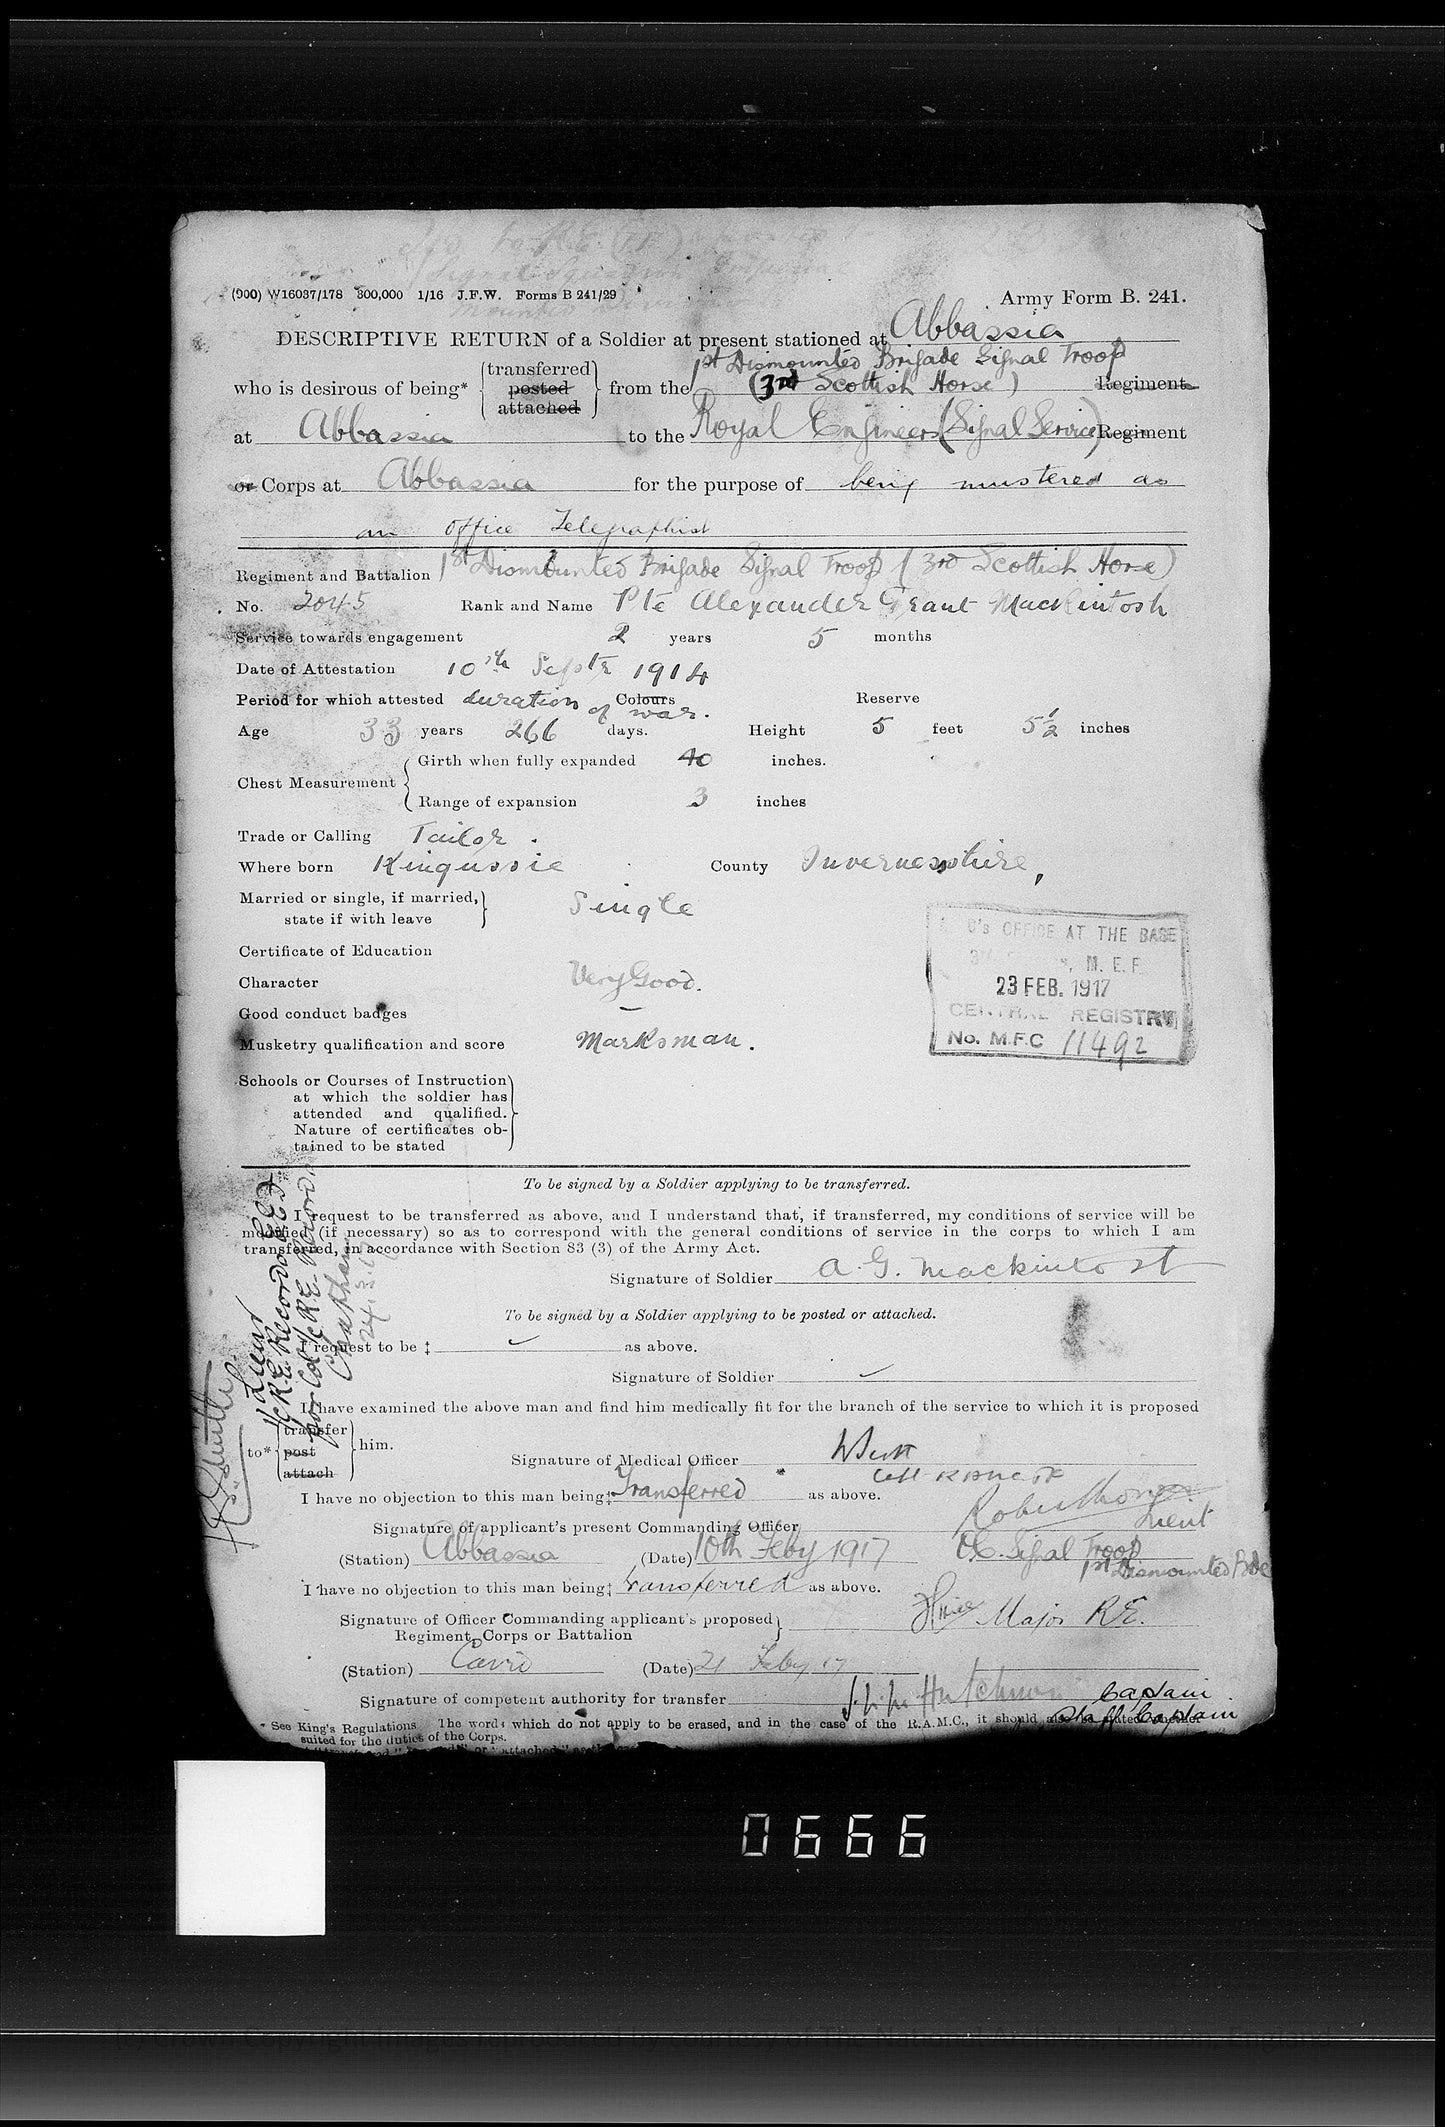 (900) W16037/178 300,000 1/16 J.F.W. Forms B 241/29
Army Form B. 241.
DESCRIPTIVE RETURN of a Soldier at present stationed at Abbassia
who is desirous of being* { transferred posted attached } from the 1st Dismounted Brigade Signal Troop (3rd Scottish Horse) Regiment
at Abbassia to the Royal Engineers (Signal Service) Regiment
or Corps at Abbassia for the purpose of being mustered as
an Office Telegraphist
Regiment and Battalion 1st Dismounted Brigade Signal Troop (3rd Scottish Horse)
No. 2045 Rank and Name Pte Alexander Grant Mackintosh
Service towards engagement 2 years 5 months
Date of Attestation 10th Septr 1914
Period for which attested duration of war. Colours Reserve
Age 33 years 266 days. Height 5 feet 5½ inches
Chest Measurement { Girth when fully expanded 40 inches.
Range of expansion 3 inches
Trade or Calling Tailor.
Where born Kingussie County Invernesshire,
Married or single, if married, state if with leave } Single
Certificate of Education
Character Very Good.
Good conduct badges –
Musketry qualification and score Marksman.
Schools or Courses of Instruction
at which the soldier has
attended and qualified.
Nature of certificates ob-
tained to be stated
G's OFFICE AT THE BASE
M. E. F.
23 FEB. 1917
CENTRAL REGISTRY
No. M.F.C 11492
To be signed by a Soldier applying to be transferred.
I request to be transferred as above, and I understand that, if transferred, my conditions of service will be
modified (if necessary) so as to correspond with the general conditions of service in the corps to which I am
transferred, in accordance with Section 83 (3) of the Army Act.
Signature of Soldier A. G. Mackintosh
To be signed by a Soldier applying to be posted or attached.
I request to be ‡ as above.
Signature of Soldier
I have examined the above man and find him medically fit for the branch of the service to which it is proposed
to* { transfer post attach } him.
Signature of Medical Officer
I have no objection to this man being‡ Transferred as above.
Signature of applicant's present Commanding Officer Lieut
(Station) Abbassia (Date) 10th Feby 1917 OC. Signal Troop
1st Dismounted Bde
I have no objection to this man being‡ transferred as above.
Signature of Officer Commanding applicant's proposed Regiment, Corps or Battalion } Major R.E.
(Station) Cairo (Date) 21 Feby 17
Signature of competent authority for transfer Captain
Staff Captain
* See King's Regulations. The words which do not apply to be erased, and in the case of the R.A.M.C., it should also be stated whether
suited for the duties of the Corps.
Lieut
i/c R.E. Records
for Col i/c R.E. Records
Chatham
24.3.17
0666